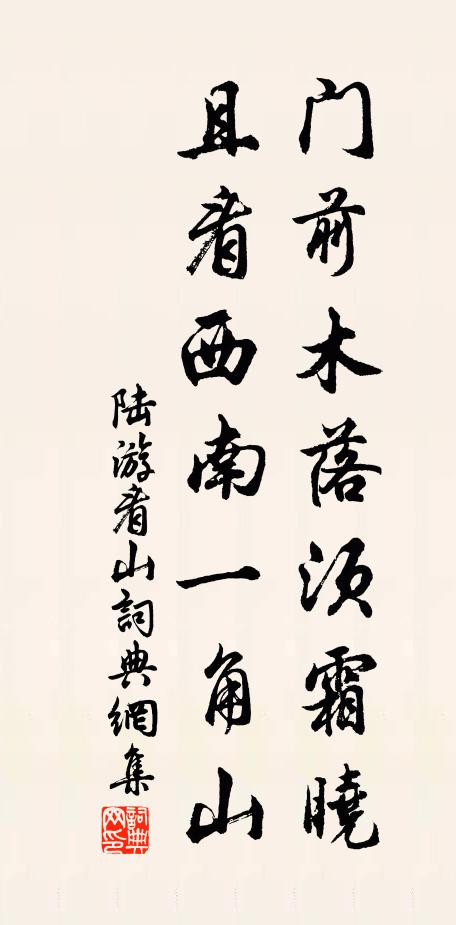 门前木落须霜晓
且看西南一角山
陆游看山詞典網集
詞典网印